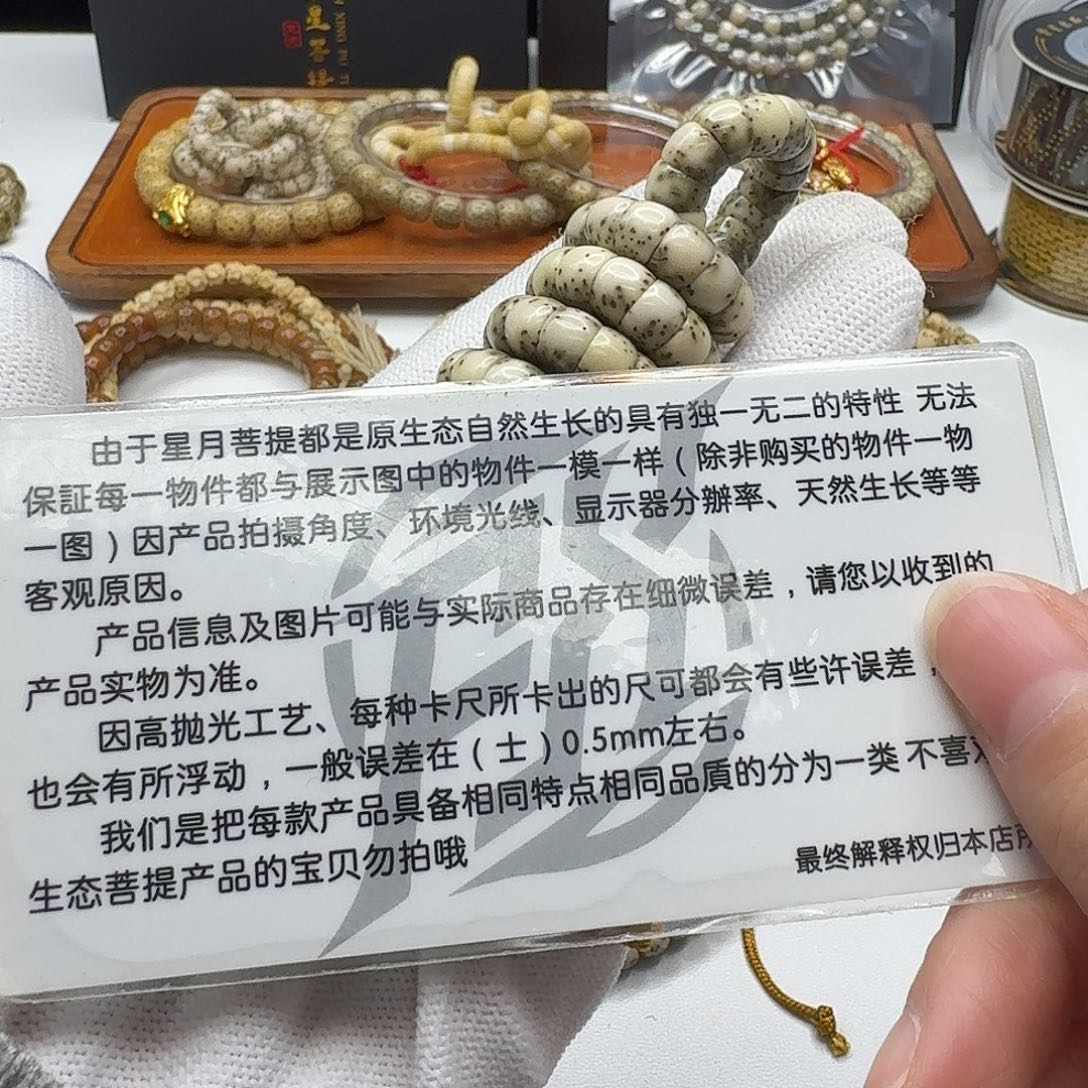 星菩提
XING PU TI
由于星月菩提都是原生态自然生长的具有独一无二的特性 无法
保証每一物件都与展示图中的物件一模一样（除非购买的物件一物
一图）因产品拍摄角度、环境光线、显示器分辨率、天然生长等等
客观原因。
产品信息及图片可能与实际商品存在细微误差，请您以收到的
产品实物为准。
因高抛光工艺、每种卡尺所卡出的尺可都会有些许误差，
也会有所浮动，一般误差在（士）0.5mm左右。
我们是把每款产品具备相同特点相同品质的分为一类 不喜
生态菩提产品的宝贝勿拍哦
最终解释权归本店